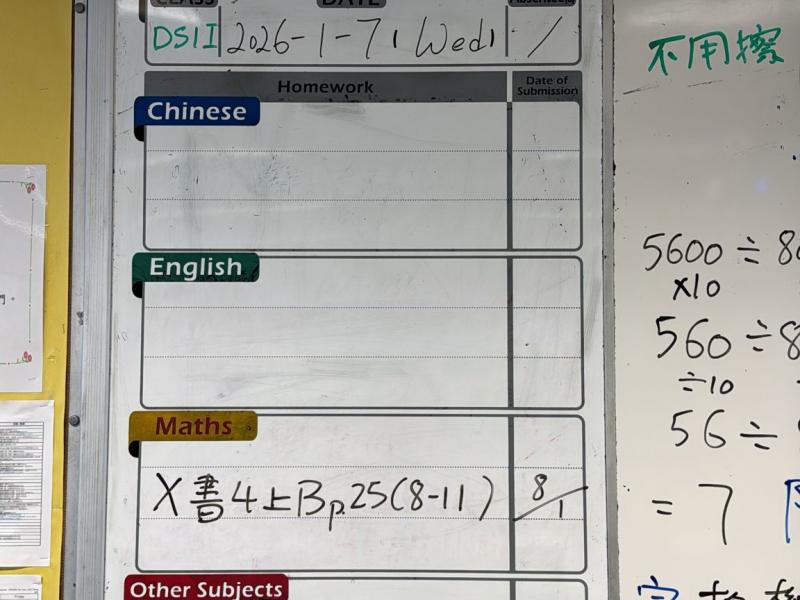 CLASS DATE
DS1I 2026-1-7 (Wed) /
Homework Date of Submission
Chinese
English
Maths
X 書 4上B p.25 (8-11) 8/1
Other Subjects
不用擦
5600 ÷ 80
×10
560 ÷ 8
÷10
56 ÷
= 7